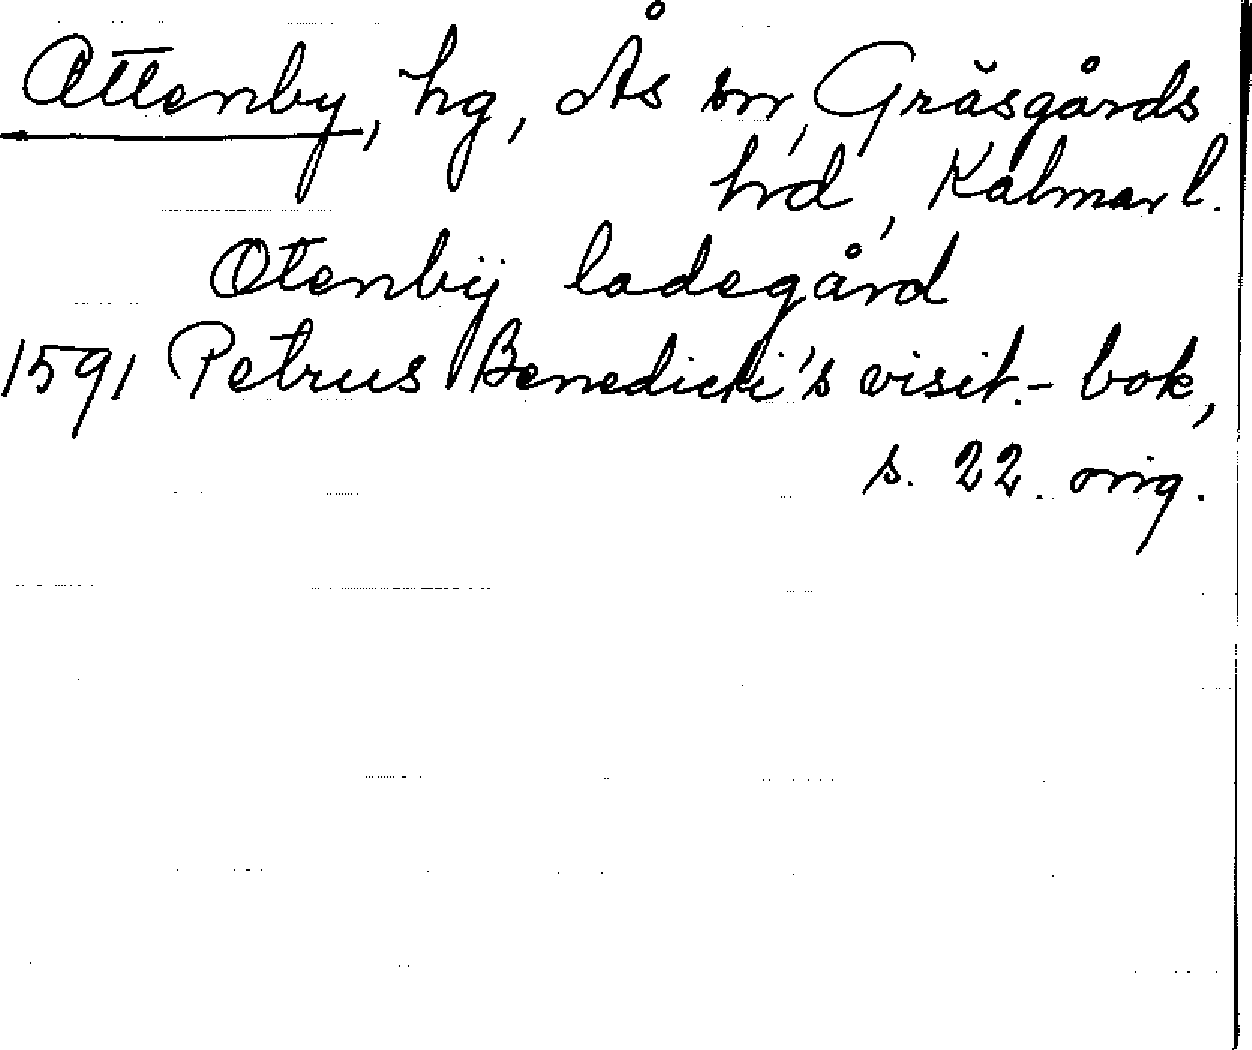 Ottenby, hg, Ås sn, Gräsgårds
hd, Kalmar l.
Otenbÿ ladegård
1591 Petrus Benedicti's visit.-bok,
s. 22. orig.